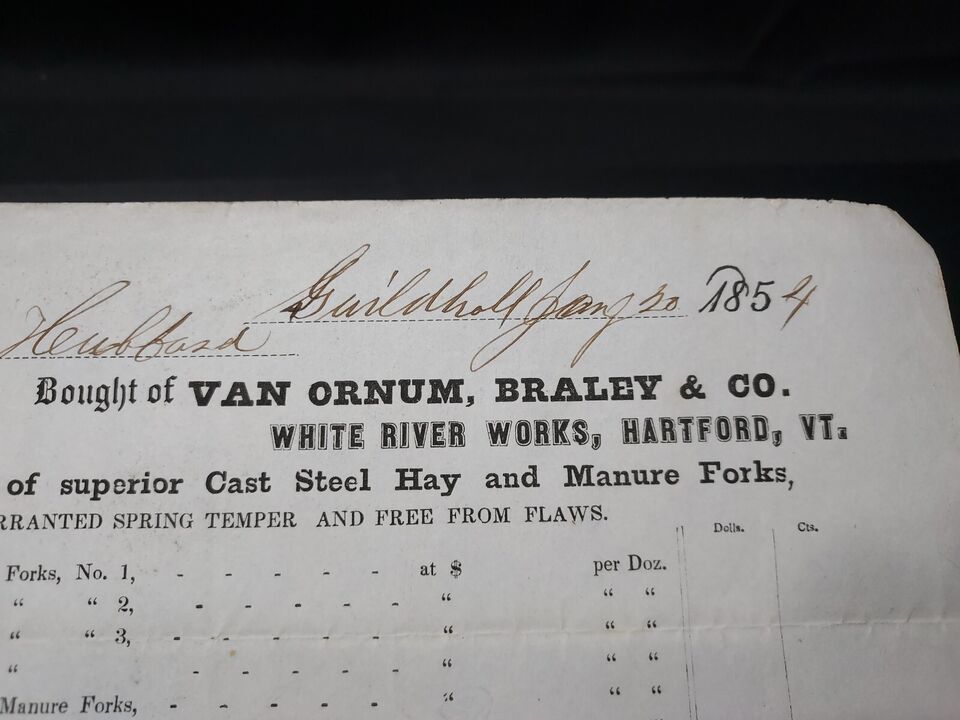 Guildhall Jany 20 1854
Hubbard
Bought of VAN ORNUM, BRALEY & CO.
WHITE RIVER WORKS, HARTFORD, VT.
of superior Cast Steel Hay and Manure Forks,
RRANTED SPRING TEMPER AND FREE FROM FLAWS.
Dolls. Cts.
Forks, No. 1, - - - - - at $ per Doz.
“ “ 2, - - - - - “ “ “
“ “ 3, - - - - - “ “ “
“ - - - - - “ “ “
Manure Forks, - - - - - “ “ “